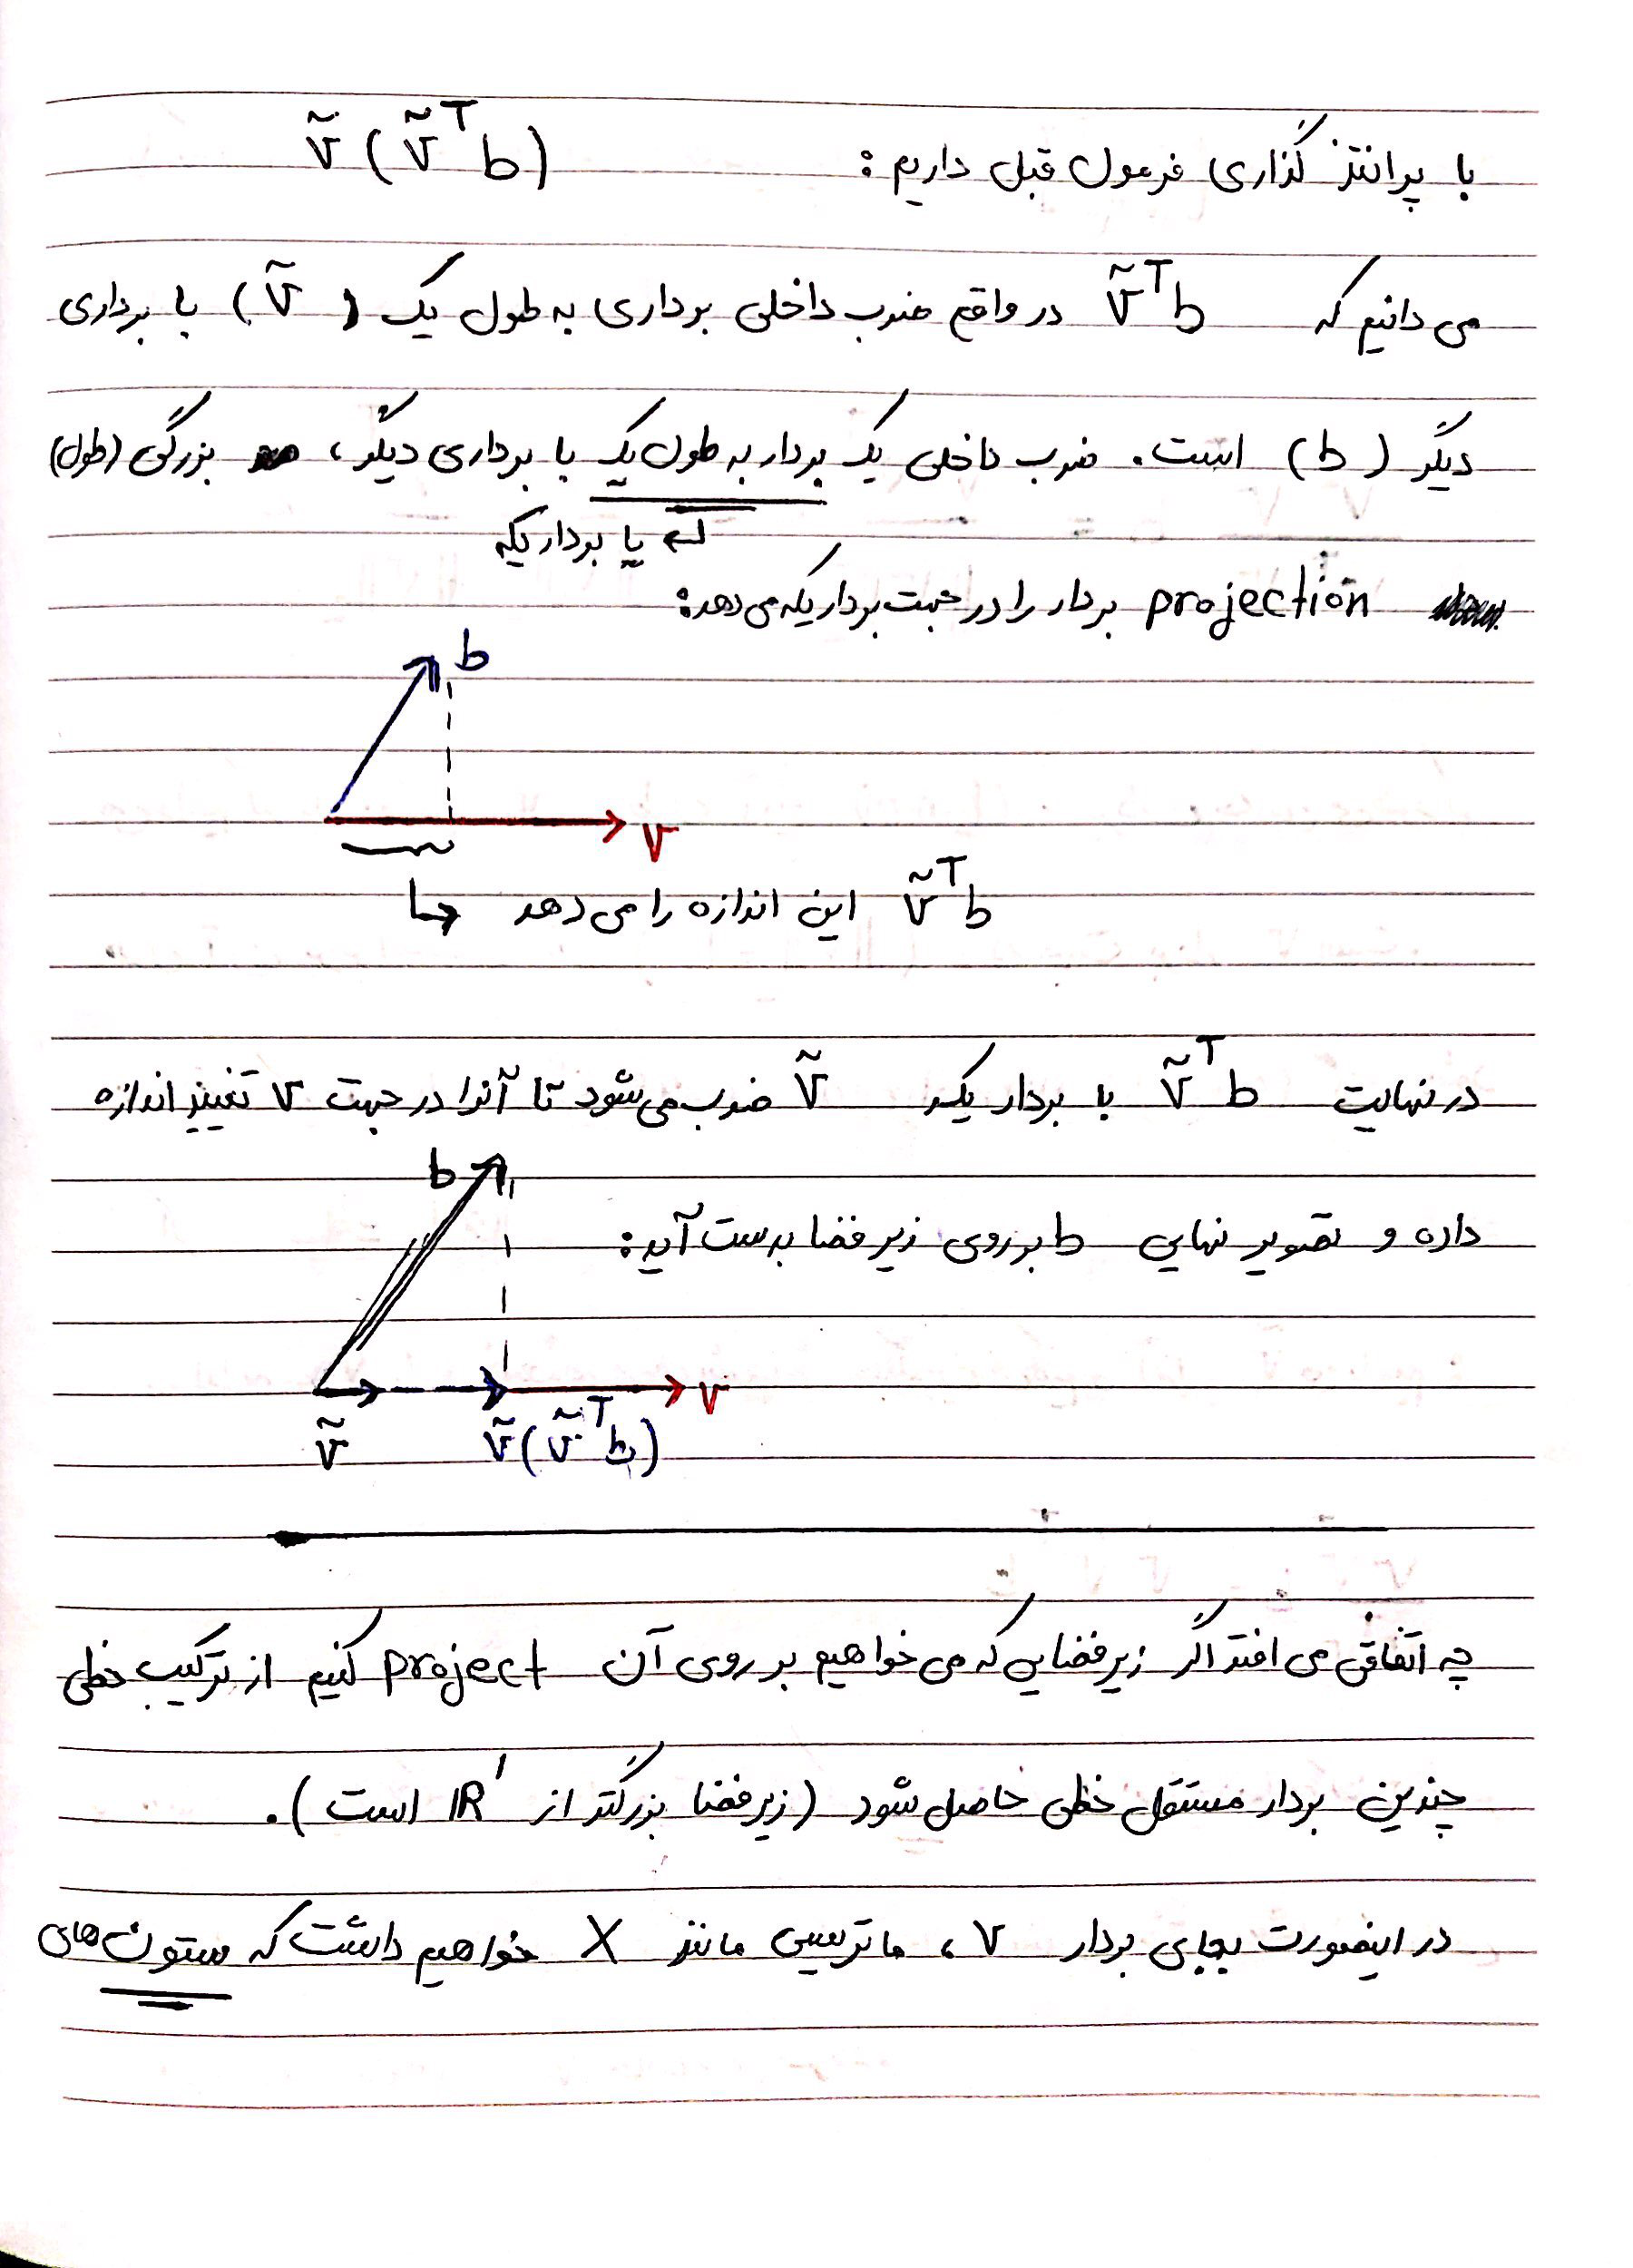 با پرانتز گذاری فرمول قبل داریم: ṽ(ṽᵀb)
می دانیم که ṽᵀb در واقع ضرب داخلی برداری به طول یک (ṽ) با برداری
دیگر (b) است. ضرب داخلی یک بردار به طول یک با برداری دیگر، بزرگی (طول)
↵ یا بردار یکه
projection بردار را در جهت بردار یکه می دهد:
b
v
ṽᵀb این اندازه را می دهد
در نهایت ṽᵀb با بردار یکه ṽ ضرب می شود تا آنرا در جهت v تغییر اندازه
b
داده و تصویر نهایی b بر روی زیرفضا بدست آید:
v
ṽ ṽ(ṽᵀb)
چه اتفاقی می افتد اگر زیرفضایی که می خواهیم بر روی آن project کنیم از ترکیب خطی
چندین بردار مستقل خطی حاصل شود (زیرفضا بزرگتر از ℝ¹ است).
در اینصورت بجای بردار v، ماتریسی مانند X خواهیم داشت که ستون های